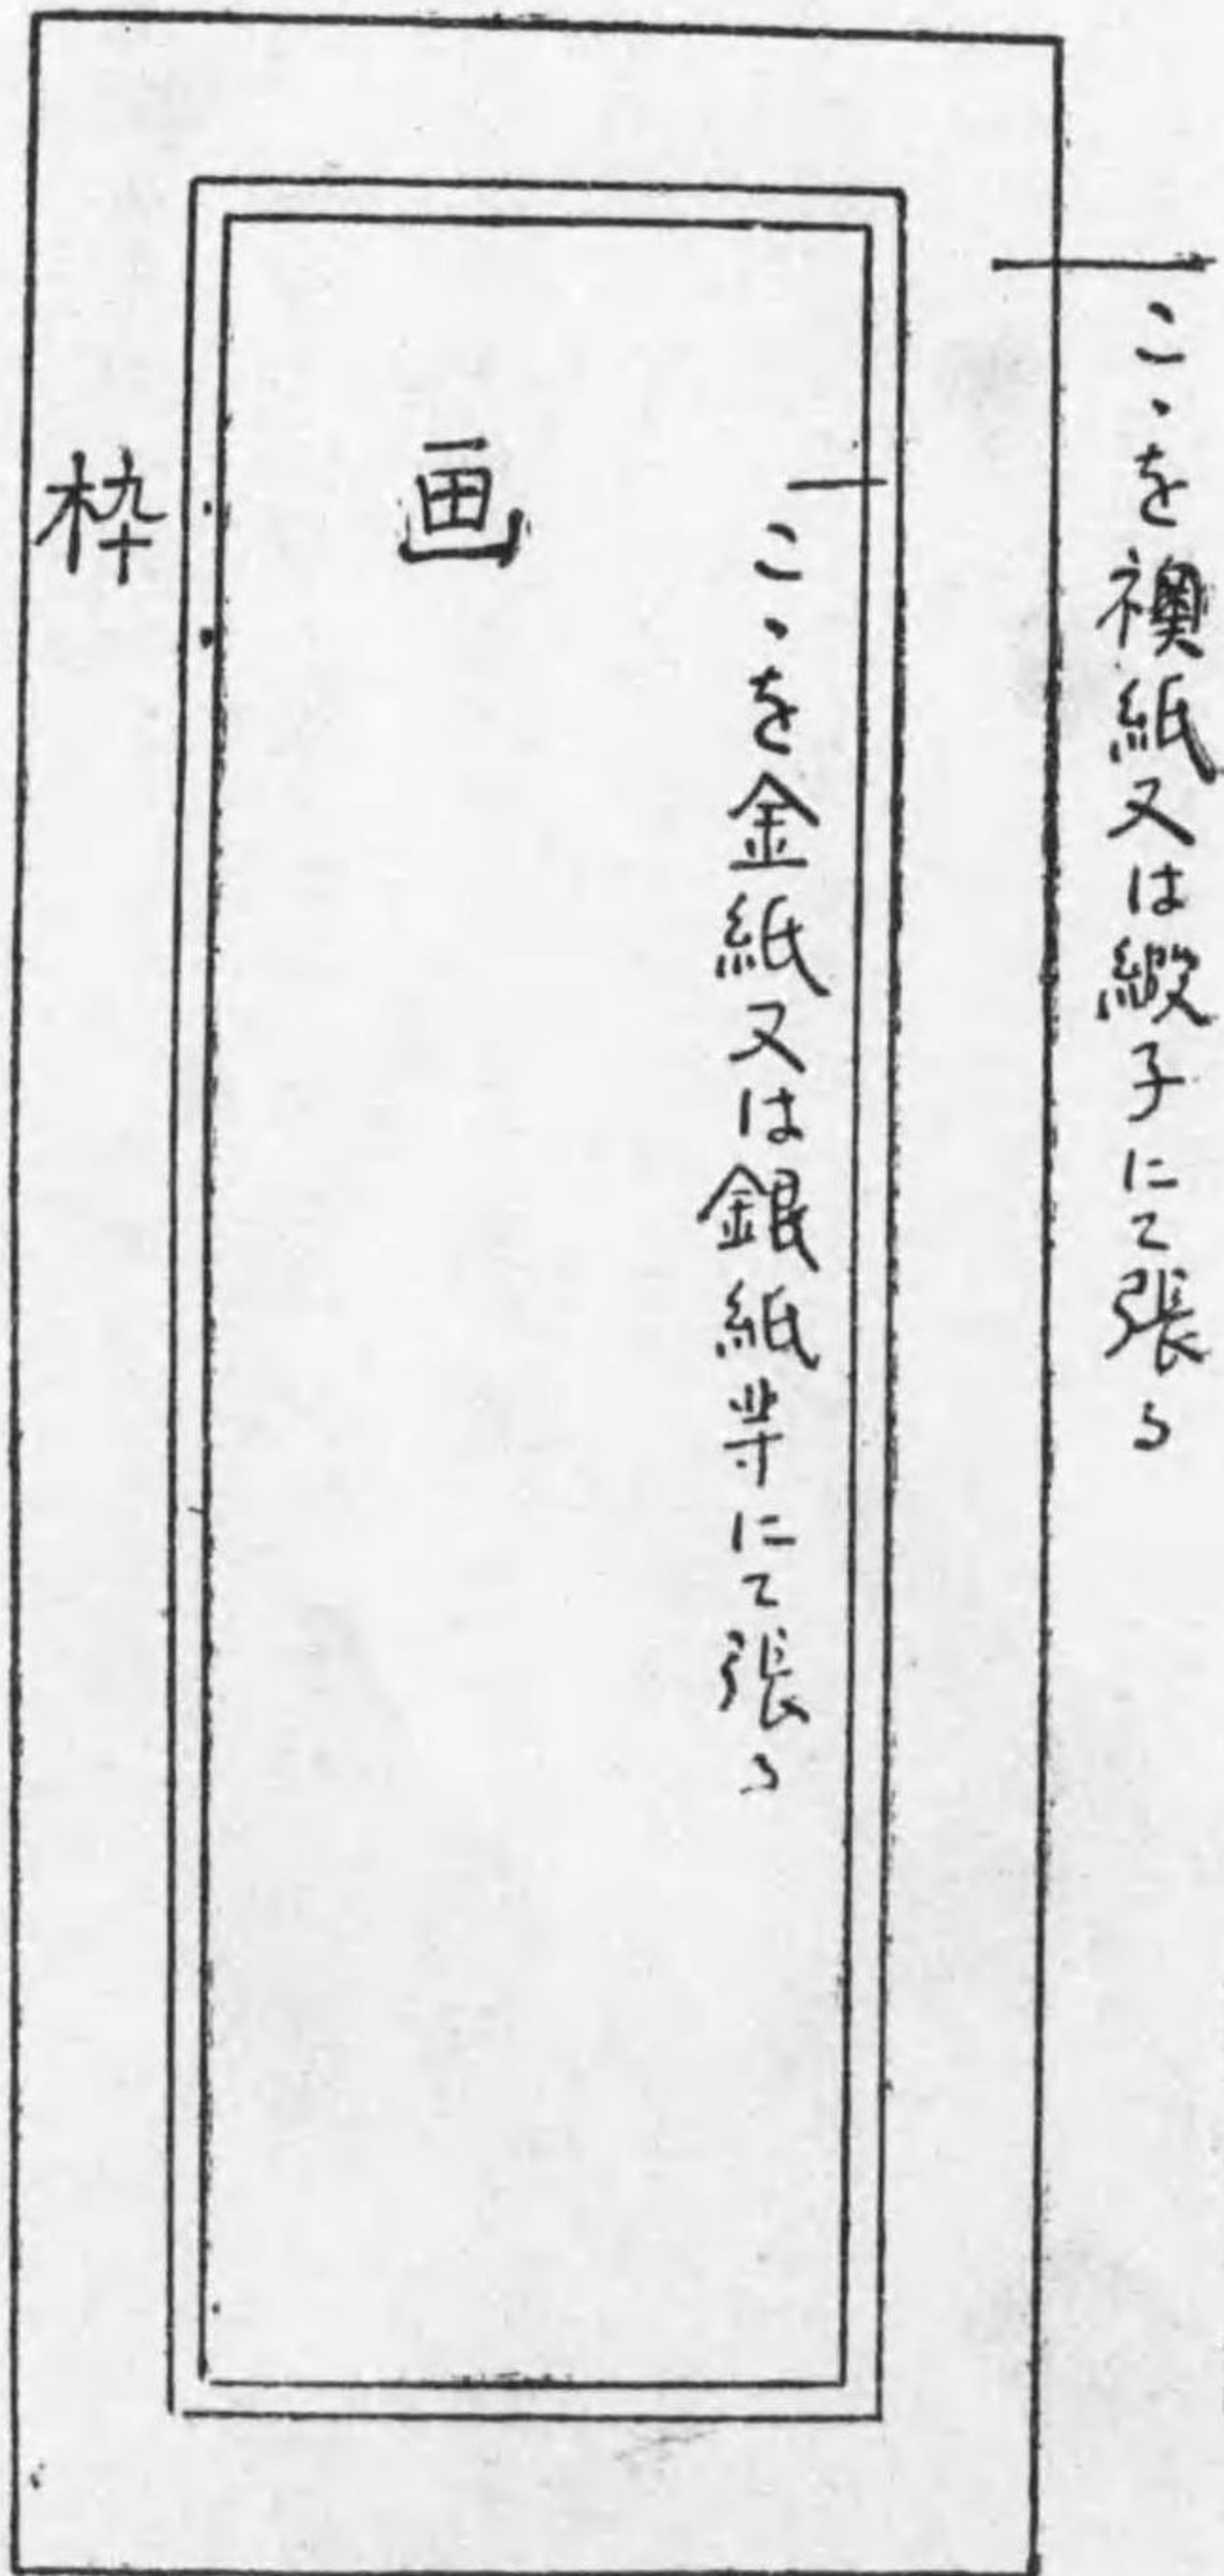 こゝを襖紙又は緞子にて張る
こゝを金紙又は銀紙等にて張る
画
枠